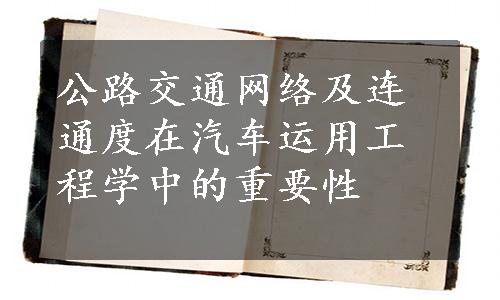 公路交通网络及连
通度在汽车运用工
程学中的重要性